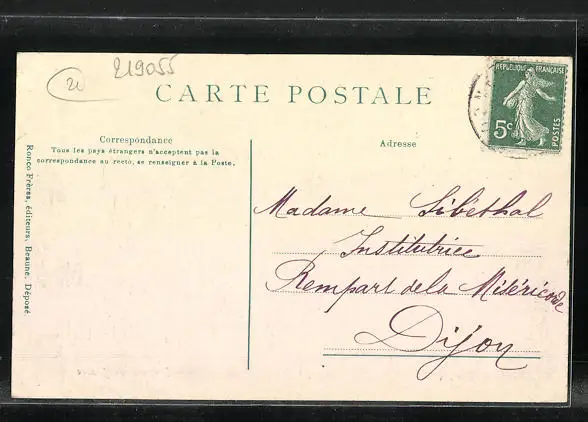 219055
21
CARTE POSTALE
REPUBLIQUE FRANÇAISE
5c
POSTES
Correspondance
Tous les pays étrangers n'acceptent pas la
correspondance au recto, se renseigner à la Poste.
Adresse
Ronco Frères, éditeurs, Beaune. Déposé
Madame Libéthal
Institutrice
Rempart de la Miséricorde
Dijon